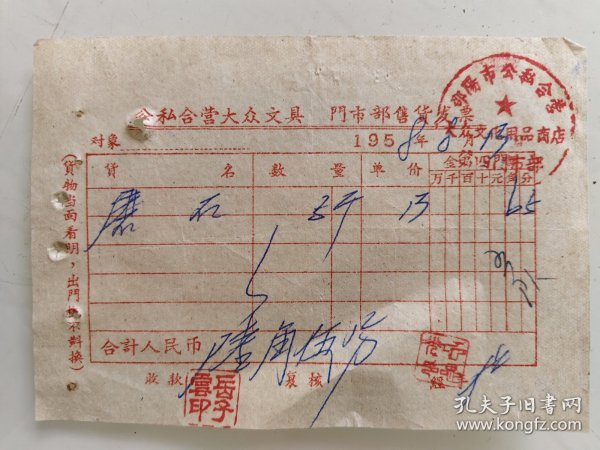 邵陽市公私合营
大众文 用品商店
門市部
公私合营大众文具 門市部售货发票
对象 1958年8月13
貨名 数量 单价 金
万千百十元角分
磨石 5斤 13 65
合計人民币 陆角伍分
收款 复核 經
岳子雲印
(貨物当面看明,出門 不斢换)
孔夫子旧书网
www.kongfz.com